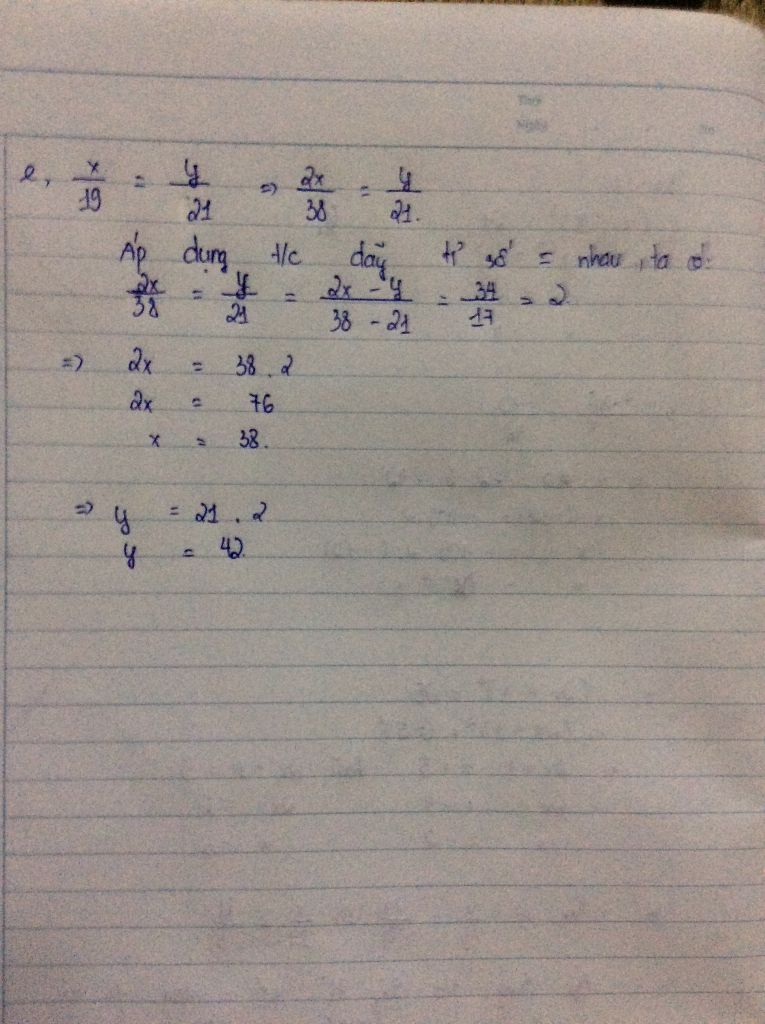 e, x/19 = y/21 => 2x/38 = y/21.
Áp dụng t/c dãy tỉ số = nhau, ta có:
2x/38 = y/21 = 2x - y/38 - 21 = 34/17 = 2
=> 2x = 38 . 2
2x = 76
x = 38.
=> y = 21 . 2
y = 42.